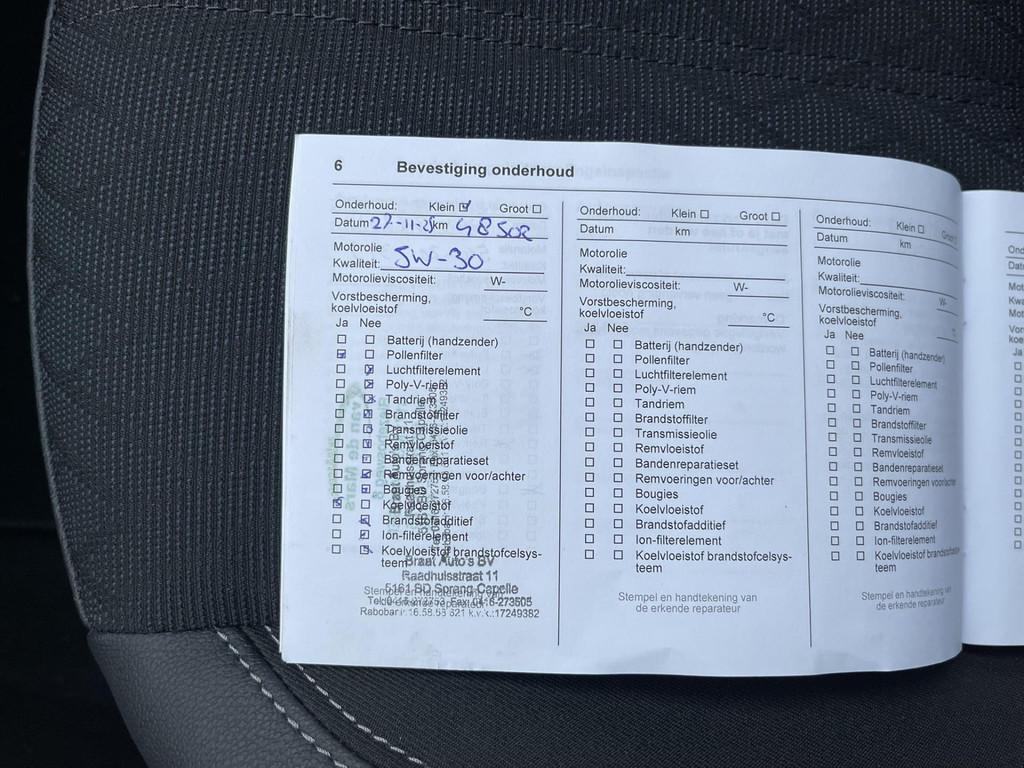 6 Bevestiging onderhoud
Onderhoud: Klein ☑ Groot ☐
Datum 27-11-25 km 48502
Motorolie
Kwaliteit: 5W-30
Motorolieviscositeit: W-
Vorstbescherming,
koelvloeistof °C
Ja Nee
☐ ☐ Batterij (handzender)
☑ ☐ Pollenfilter
☐ ☑ Luchtfilterelement
☐ ☑ Poly-V-riem
☐ ☑ Tandriem
☐ ☑ Brandstoffilter
☐ ☑ Transmissieolie
☐ ☑ Remvloeistof
☐ ☑ Bandenreparatieset
☐ ☑ Remvoeringen voor/achter
☐ ☑ Bougies
☑ ☐ Koelvloeistof
☐ ☑ Brandstofadditief
☐ ☑ Ion-filterelement
☐ ☑ Koelvloeistof brandstofcelsys-
teem
Braat Auto's BV
Raadhuisstraat 11
5161 BD Sprang-Capelle
Stempel en handtekening van
de erkende reparateur
Fax: 0416-273505
k.v.k.:17249382
van de Mars
Onderhoud: Klein ☐ Groot ☐
Datum km
Motorolie
Kwaliteit:
Motorolieviscositeit: W-
Vorstbescherming,
koelvloeistof °C
Ja Nee
☐ ☐ Batterij (handzender)
☐ ☐ Pollenfilter
☐ ☐ Luchtfilterelement
☐ ☐ Poly-V-riem
☐ ☐ Tandriem
☐ ☐ Brandstoffilter
☐ ☐ Transmissieolie
☐ ☐ Remvloeistof
☐ ☐ Bandenreparatieset
☐ ☐ Remvoeringen voor/achter
☐ ☐ Bougies
☐ ☐ Koelvloeistof
☐ ☐ Brandstofadditief
☐ ☐ Ion-filterelement
☐ ☐ Koelvloeistof brandstofcelsys-
teem
Stempel en handtekening van
de erkende reparateur
Onderhoud: Klein ☐ Groot ☐
Datum km
Motorolie
Kwaliteit:
Motorolieviscositeit: W-
Vorstbescherming,
koelvloeistof °C
Ja Nee
☐ ☐ Batterij (handzender)
☐ ☐ Pollenfilter
☐ ☐ Luchtfilterelement
☐ ☐ Poly-V-riem
☐ ☐ Tandriem
☐ ☐ Brandstoffilter
☐ ☐ Transmissieolie
☐ ☐ Remvloeistof
☐ ☐ Bandenreparatieset
☐ ☐ Remvoeringen voor/achter
☐ ☐ Bougies
☐ ☐ Koelvloeistof
☐ ☐ Brandstofadditief
☐ ☐ Ion-filterelement
☐ ☐ Koelvloeistof brandstofcelsys-
teem
Stempel en handtekening van
de erkende reparateur